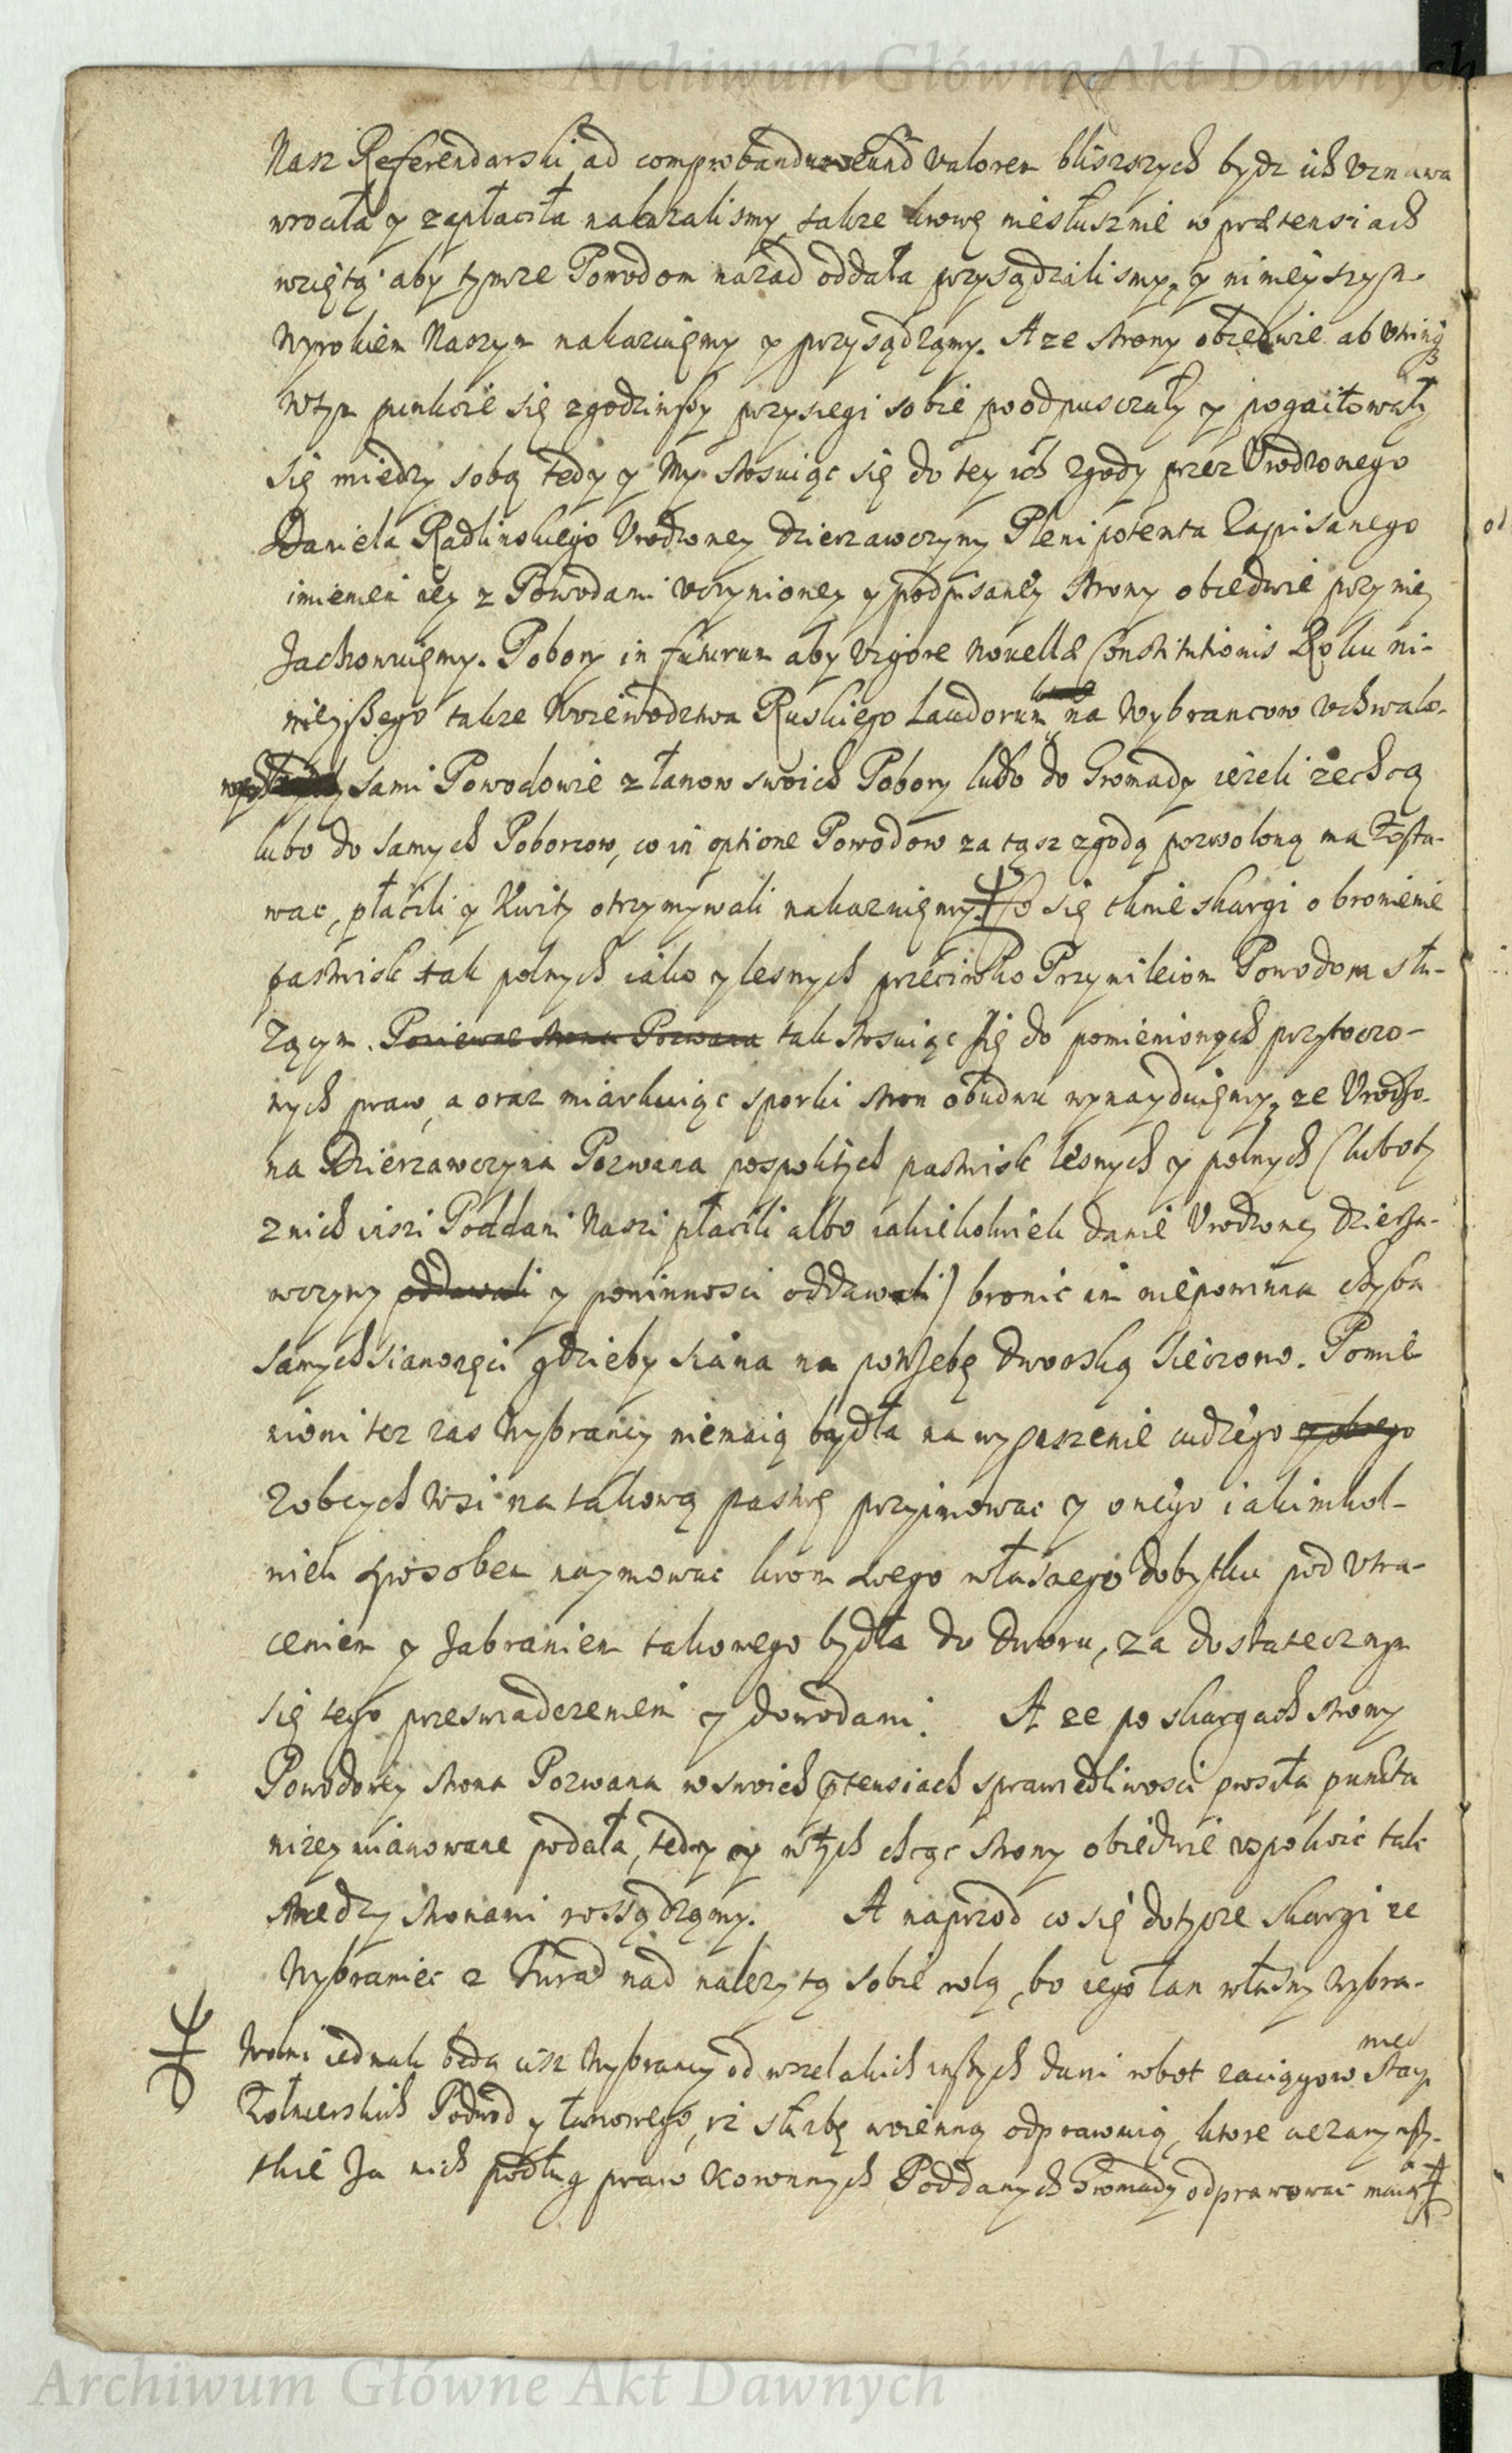 Archiwum Główne Akt Dawnych
Nasz Referendarski ad comprobandum eund valorem bliszszych bydz ich uznawa
wrociła y zapłaciła nakazalismy, takze krowę niesłusznie w prætensiach
wziętą aby tymze Powodom nazad oddała przysądzilismy, y ninieyszym
Wyrokiem Naszym nakazuięmy y przysądzamy. A ze strony obiedwie ab utrinq
Wtym punkcie się zgodziwszy przysiegi sobie poodpusczały y pogaiłowały
się miedzy sobą tedy y My stosuiąc się do tey ich zgody przez Urodzonego
Daniela Radlinskiego Urodzoney Dzierzawczyny Plenipotenta Zapisanego
imieniem iey z Powodami uczynioney y podpisaney strony obiedwie przy niey
Zachowuięmy. Pobory in futurum aby vigore Novellæ Constitutionis Roku ni-
nieyszego takze Woiewodztwa Ruskiego Laudorum na Wybrancow uchwalo-
sami Powodowie z łanow swoich Pobory lubo do Gromady iezeli zechcą
lubo do samych Poborcow, co in optione Powodow za tąsz zgodą pozwoloną ma Zosta-
wac, płacili y Kwity otrzymywali nakazuięmy. Co się tknie skargi o bronienie
pastwisk tak polnych iako y lesnych przeciwko Przywileiom Powodom słu-
Zącym. Poniewaz strona Pozwana tak stosuiąc się do pomienionych przytoczo-
nych praw, a oraz miarkuiąc sporki stron obudwu wynayduięmy, ze Urodzo-
na Dzierzawczyna Pozwana pospolitych pastwisk lesnych y polnych (luboty
z nich ciszi Poddani Naszi płacili albo iakiekolwiek danie Urodzoney Dzierza-
wczyny oddawali y powinnosci oddawali) bronic im niepowinna chyba
samych sianozęci gdzieby siana na potrzebę dworską sieczono. Pomie
nioni tez zas Wybrancy niemaią bydła na wypaszenie cudzego
z obcych Wsi na takową pastwę przyimowac y onego iakimkol-
wiek sposobem naymowac krom swego własnego dobytku pod utra-
ceniem y Zabraniem takowego bydła do Dworu, za dostatecznym
się tego przeswiadczeniem y dowodami. A ze po skargach strony
Powodowey strona Pozwana w swoich ptensiach sprawiedliwosci prosiła puncta
nizey mianowane podała, tedy y w tych chcąc strony obiedwie uspokoic tak
miedzy stronami rossądzamy. A naprzod co się dotycze skargi ze
Wybraniec z Turad nad nalezytą sobie rolą, bo iego łan własny Wybra-
niec
Wolni iednak będą cisz Wybrancy od wszelakich inszych dani robot zaciągow Stacyi
Zołnierskich Podwod y łanowego, iz słuzbę woienną odprawuią, ktore ciezary wszy-
tkie Za nich podług praw Koronnych Poddanych Gromady odprawowac maią
Archiwum Główne Akt Dawnych